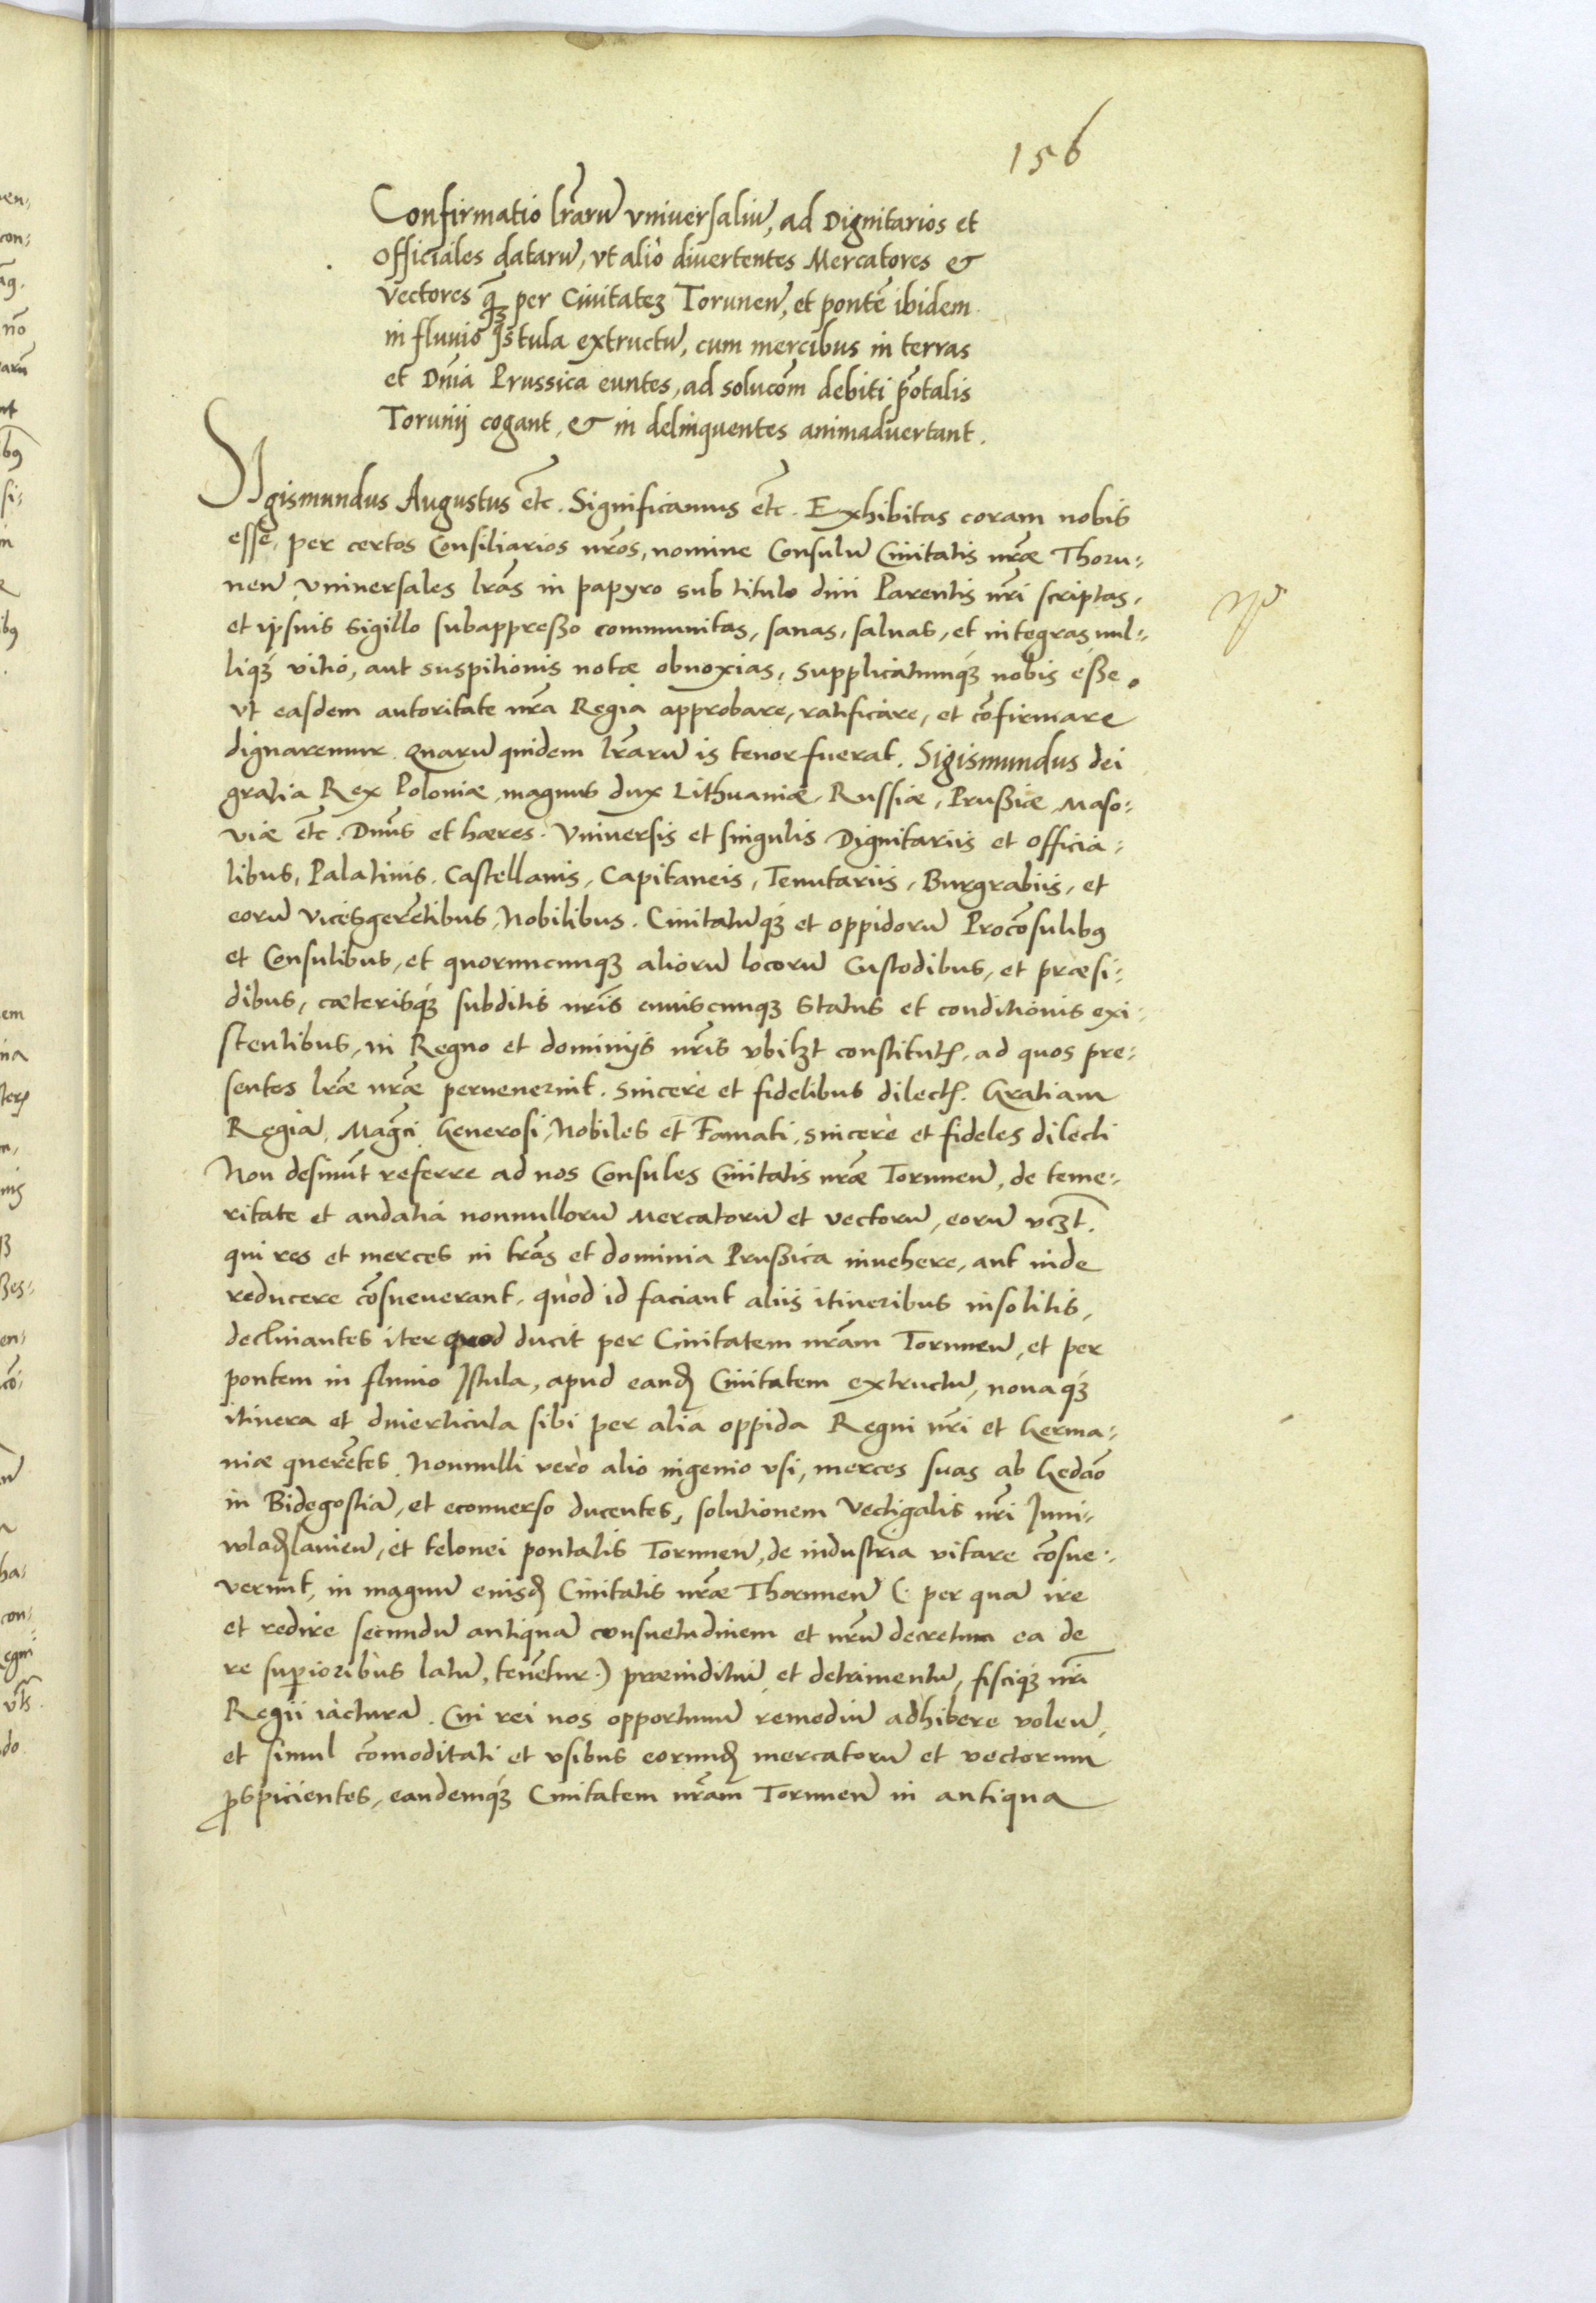 156
Confirmatio lr̃arũ vniuersaliũ, ad Dignitarios et
Officiales datarũ, vt aliò diuertentes Mercatores &
Vectores q̃ȝ per Ciuitateȝ Toruneñ, et pontẽ ibidem
in fluuio Istula extructũ, cum mercibus in terras
et Dñia Prussica euntes, ad solucõm debiti põtalis
Torunij cogant, & in delinquentes animaduertant.
SIgismundus Augustus etc̃. Significamus etc̃. Exhibitas coram nobis
esse, per certos Consiliarios nr̃os, nomine Consulũ Ciuitatis nr̃æ Thoru-
neñ Vniuersales lr̃as in papyro sub titulo diui Parentis nr̃i scriptas,
et ipsius sigillo subappreßo communitas, sanas, saluas, et integras, nul-
liqȝ vitio, aut suspitionis notæ obnoxias, supplicatumqȝ nobis eße,
vt easdem autoritate nr̃a Regia approbare, ratificare, et cõfirmare
dignaremur. Quarũ quidem lr̃arũ is tenor fuerat. Sigismundus dei
gratia Rex Poloniæ, magnus dux Lithuaniæ, Russiæ, Prußiæ, Maso-
viæ etc̃. Dñus et hæres. Vniuersis et singulis Dignitariis et officia-
libus, Palatinis, Castellanis, Capitaneis, Tenutariis, Burgrabiis, et
eorũ vicesgerẽtibus, Nobilibus. Ciuitatũqȝ et oppidorũ Procõsulibꝰ
et Consulibus, et quorumcunqȝ aliorũ locorũ Custodibus, et præsi-
dibus, cæterisqȝ subditis nr̃is cuiuscunqȝ status et conditionis exi-
stentibus, in Regno et dominijs nr̃is vbilȝt constitutꝭ, ad quos pre-
sentes lr̃æ nr̃æ peruenerint. sincerè et fidelibus dilectꝭ. Gratiam
Regiã, Mag̃ci Generosi, Nobiles et Famati, sincerè et fideles dilecti
Non desinũt referre ad nos Consules Ciuitatis nr̃æ Toruneñ, de teme-
ritate et audatia nonnullorũ Mercatorũ et vectorũ, eorũ vcȝt.
qui res et merces in tr̃as et dominia Prußica inuehere, aut inde
reducere cõsueuerant, quòd id faciant aliis itineribus insolitis,
declinantes iter quod ducit per Ciuitatem nr̃am Toruneñ, et per
pontem in fluuio Istula, apud eandẽ Ciuitatem extructũ, nouaqȝ
itinera et diuerticula sibi per alia oppida Regni nr̃i et Germa-
niæ querẽtes. Nonnulli verò alio ingenio vsi, merces suas ab Gedãõ
in Bidegostiã, et econuerso ducentes, solutionem Vectigalis nr̃i Iuni-
wladꝭlauieñ, et telonei pontalis Toruneñ, de industria vitare cõsue-
verunt, in magnũ eiusdꝭ Ciuitatis nr̃æ Thoruneñ (. per quã ire
et redire secundũ antiquã consuetudinem et nr̃ũ decretum ea de
re suꝑioribus latũ, tenẽtur.) præiuditiũ et detrimentũ, fisciqȝ nr̃i
Regii iacturã. Cui rei nos opportunũ remediũ adhibere voleñ,
et simul cõmoditati et vsibus eorundꝭ mercatorũ et vectorum
ꝓspicientes, eandemqȝ Ciuitatem nr̃am Toruneñ in antiqua